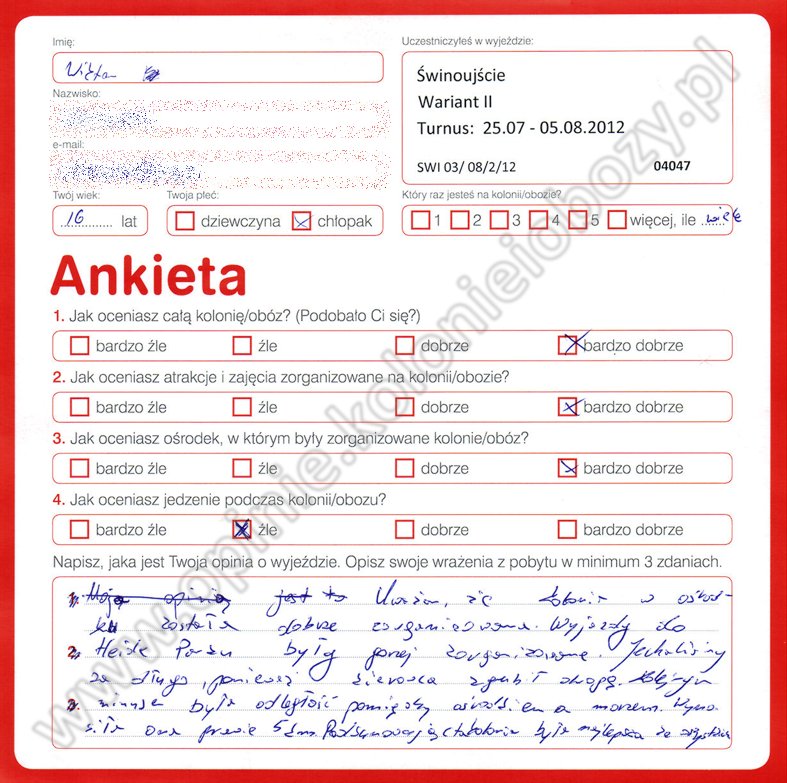 Imię:
Wiktor
Nazwisko:
e-mail:
Twój wiek:
16 lat
Twoja płeć:
dziewczyna chłopak
Uczestniczyłeś w wyjeździe:
Świnoujście
Wariant II
Turnus: 25.07 - 05.08.2012
SWI 03/ 08/2/12 04047
Który raz jesteś na kolonii/obozie?
1 2 3 4 5 więcej, ile wiele
Ankieta
1. Jak oceniasz całą kolonię/obóz? (Podobało Ci się?)
bardzo źle źle dobrze bardzo dobrze
2. Jak oceniasz atrakcje i zajęcia zorganizowane na kolonii/obozie?
bardzo źle źle dobrze bardzo dobrze
3. Jak oceniasz ośrodek, w którym były zorganizowane kolonie/obóz?
bardzo źle źle dobrze bardzo dobrze
4. Jak oceniasz jedzenie podczas kolonii/obozu?
bardzo źle źle dobrze bardzo dobrze
Napisz, jaka jest Twoja opinia o wyjeździe. Opisz swoje wrażenia z pobytu w minimum 3 zdaniach.
1. Moja opinia jest to Uważam, że kolonia w ośrod-
ku została dobrze zorganizowana. Wyjazdy do
2. Heide Parku były gorzej zorganizowane. Jechaliśmy
za długo, ponieważ kierowca zgubił drogę. Kolejnym
3. minusem była odległość pomiędzy ośrodkiem a morzem. Wyno-
siła ona prawie 5 km. Podsumowując ta kolonia była najlepsza ze wszystkich
www.opinie.kolonieiobozy.pl